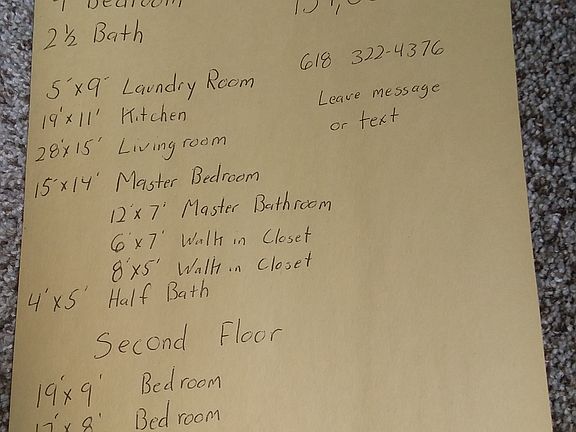 4 Bedroom
2 ½ Bath
618 322-4376
Leave message
or text
5'x9' Laundry Room
19'x11' Kitchen
28'x15' Living room
15'x14' Master Bedroom
12'x7' Master Bathroom
6'x7' Walk in Closet
8'x5' Walk in Closet
4'x5' Half Bath
Second Floor
19'x9' Bedroom
Bedroom